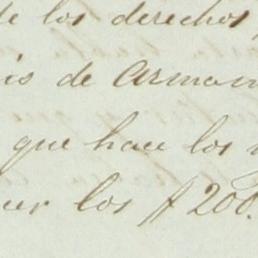 de los derechos
is de Arman
que hace los
er los $200.